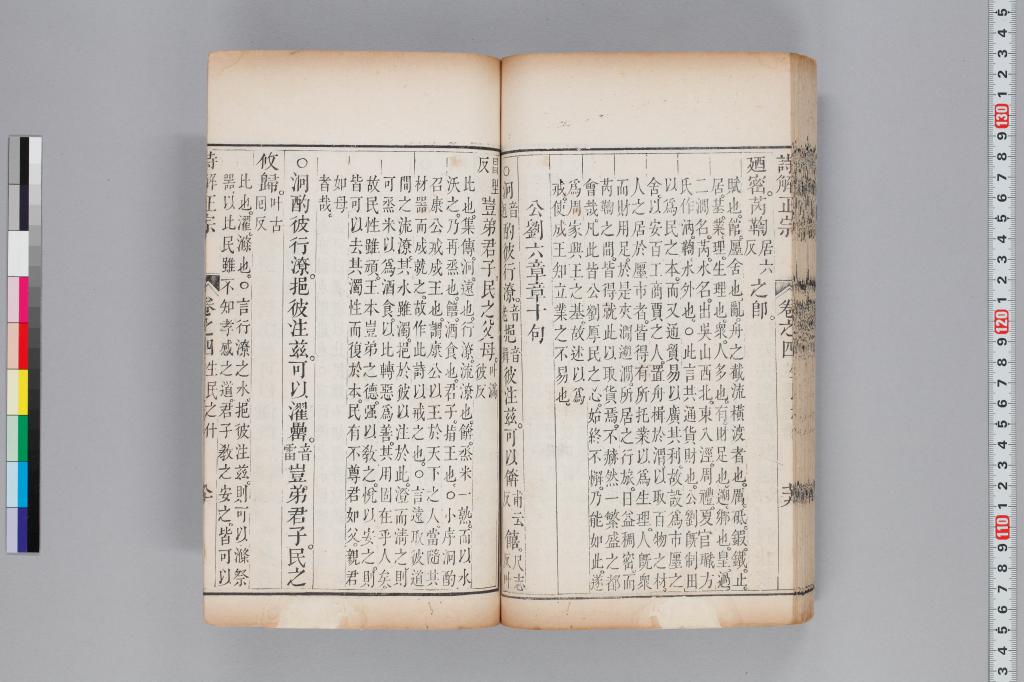 詩解正宗 卷之四
廼密芮鞫居六反之即
賦也館廛舍也亂舟之截流橫渡者也厲砥鍛鐵止
居基業理生理也衆人多也有財足也溯鄉也皇過
二澗名芮水名出吳山西北東入涇周禮夏官職方
氏作汭鞫水外也○此言其通貨財也公劉旣制田
以爲民之本而又通貿易以廣其利故設爲市廛之
舍以安百工商賈之人置舟楫於渭以取百物之材
人之居於廛市者皆得有所托業以爲生理人旣衆
而財用足於是夾澗遡澗所居之行旅日益稠密而
芮鞫之間皆得就此以取貨焉不赫然一繁盛之都
會哉凡此皆公劉厚民之心始終不懈乃能如此遂
爲周家興王之基故述以爲
戒使成王知立業之不易也
公劉六章章十句
○泂音酌彼行潦音挹音彼注玆可以餴甫云饎尺志反叶
昌里反豈弟君子民之父母叶滿彼反
比也集傳泂遠也行潦流潦也餴烝米一熟而以水
沃之乃再烝也饎酒食也君子指王也○小序泂酌
召康公戒成王也謂康公以王於天下之人當隨其
材器而成就之故作此詩以戒之也○言遠取彼道
間之流潦其水雖濁挹於彼以注於此澄而清之則
可烝米以爲酒食以比轉惡爲善其用固在乎人矣
故民性雖頑王本豈弟之德强以敎之悅以安之則
皆可以去其濁性而復於本民有不尊君如父親君
如母
者哉
○泂酌彼行潦挹彼注玆可以濯罍音雷豈弟君子民之
攸歸叶古回反
比也濯滌也○言行潦之水挹彼注玆則可以滌祭
器以比民雖不知孝感之道君子敎之安之皆可以
詩解正宗 卷之四 生民之什